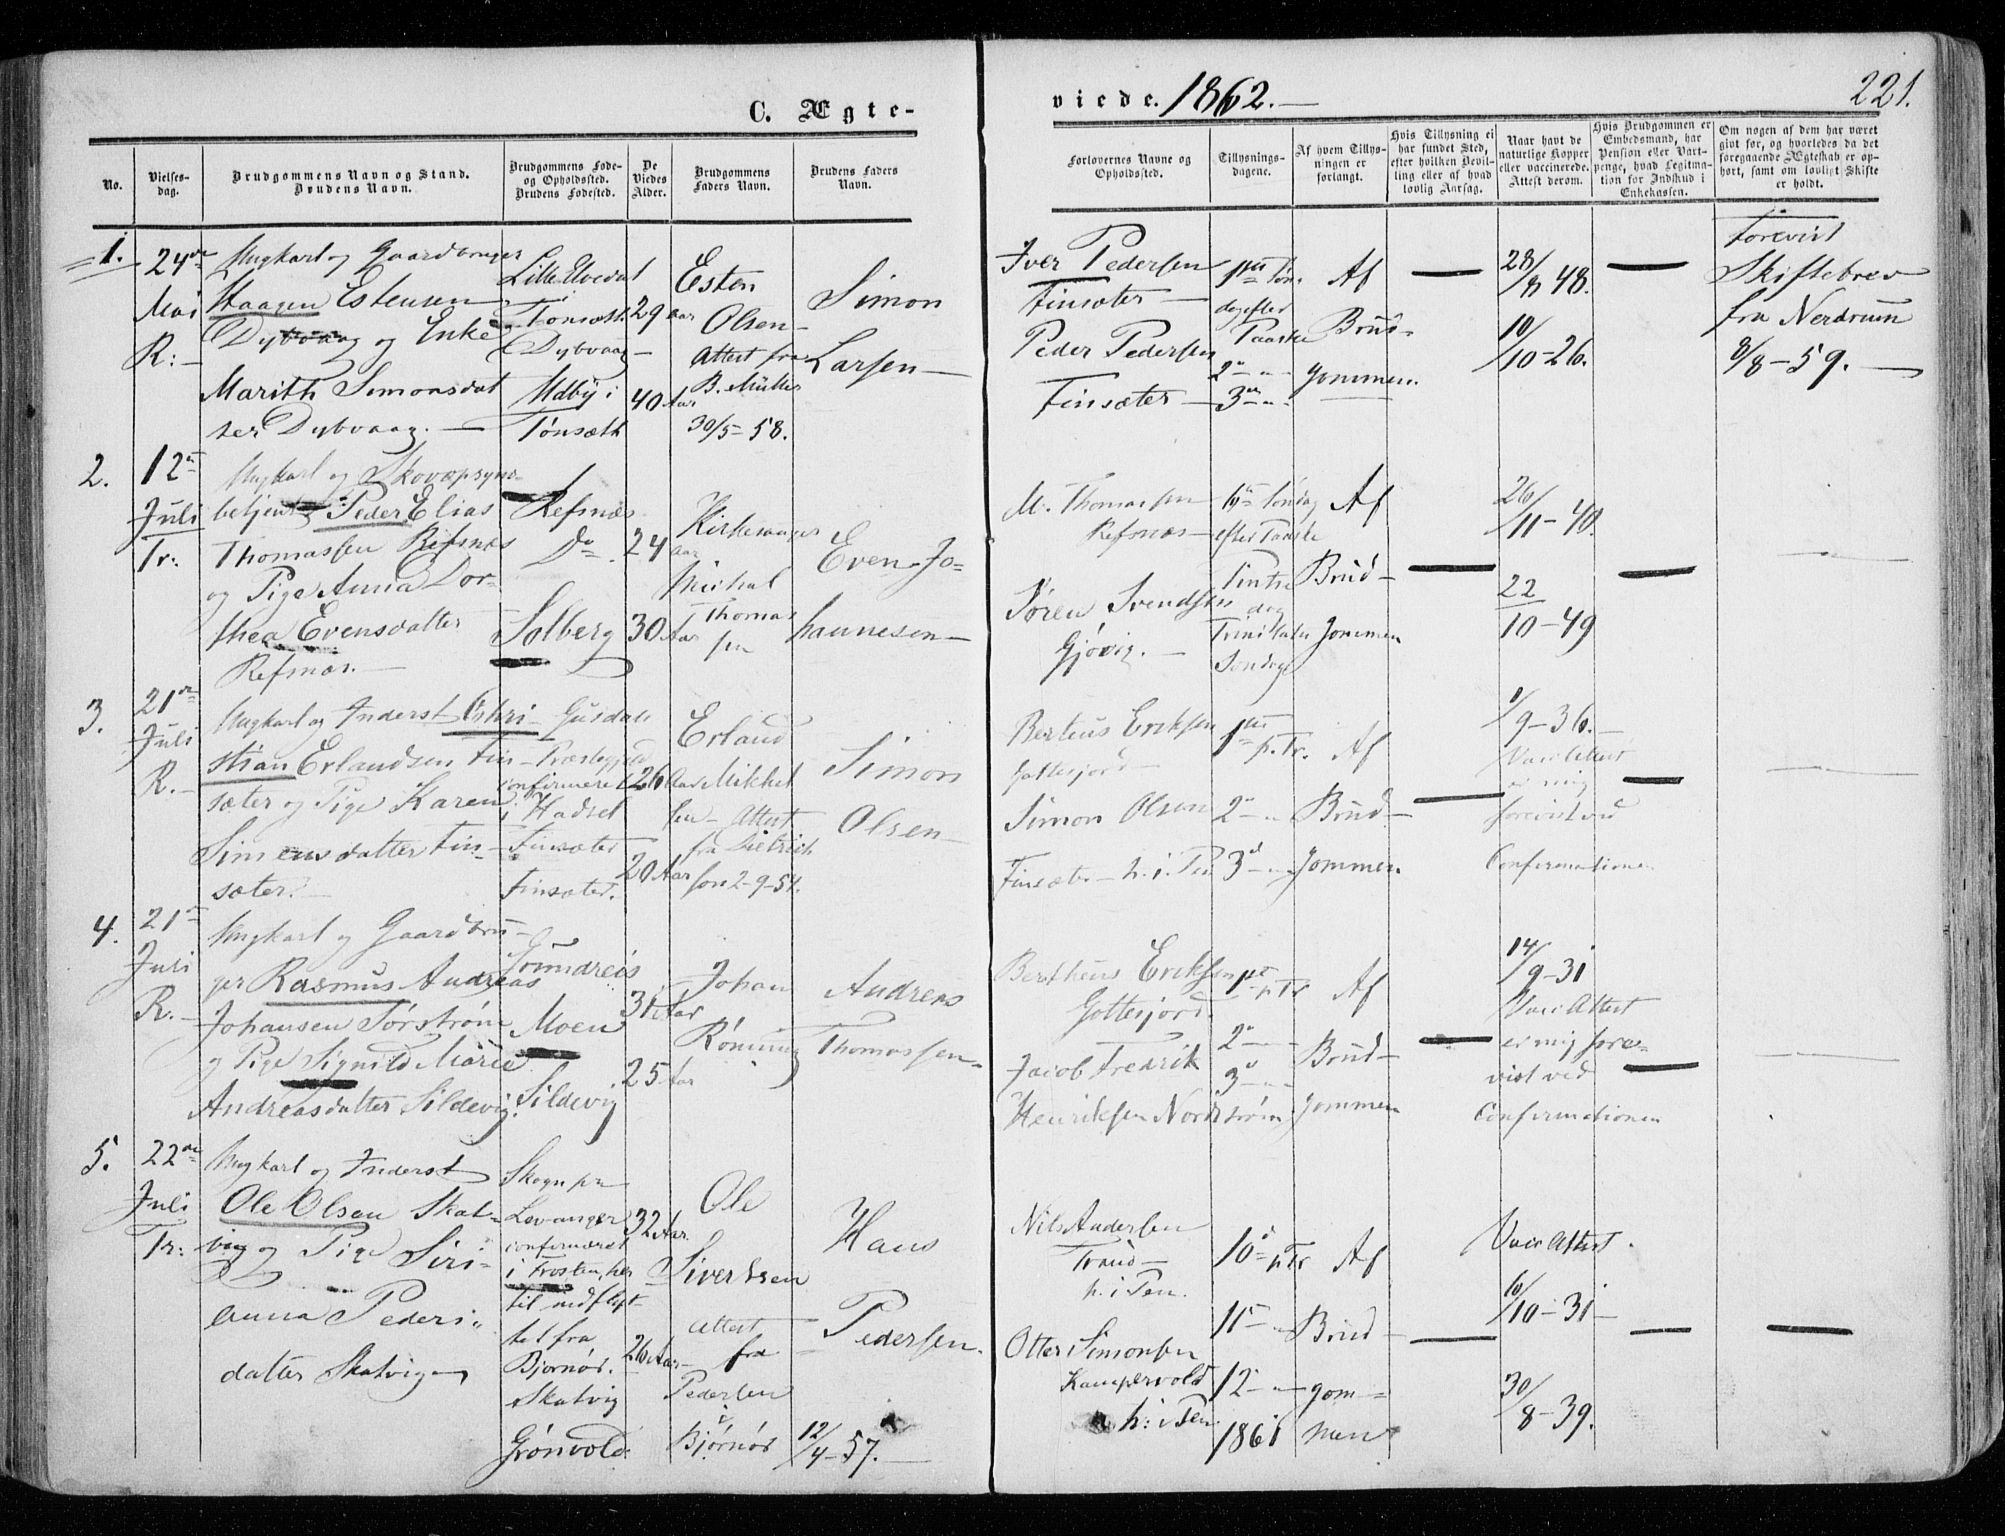 C. Ægte-
viede. 1862.
221.
No.
Vielses-
dag.
Brudgommens Navn og Stand.
Brudens Navn.
Brudgommens Føde-
og Opholdssted.
Brudens Fødested.
De
Viedes
Alder.
Brudgommens
Faders Navn.
Brudens Faders
Navn.
Forlovernes Navne og
Opholdssted.
Tillysnings-
dagene.
Af hvem Tillys-
ningen er
forlangt.
Hvis Tillysning ei
har fundet Sted,
efter hvilken Bevil-
ling eller af hvad
lovlig Aarsag.
Naar havt de
naturlige Kopper
eller vaccinerede.
Attest derom.
Hvis Brudgommen er
Embedsmand, har
Pension eller Vart-
penge, hvad Legitima-
tion for Indskud i
Enkekassen.
Om nogen af dem har været
givt før, og hvorledes da det
foregaaende Ægteskab er op-
hørt, samt om lovligt Skifte
er holdt.
1.
24de
Mai
R:
Ungkarl og Gaardbruger
Haagen Estensen
Dybvaag og Enke
Marith Simonsdat
ter Dybvaag.
Lille Elvedal
i
Tønsæth
Dybvaag
Udby i
Tønsæth
29 Aar
40 Aar
Esten
Olsen
Attest fra
B. Müller
30/5-58.
Simon
Larsen
Iver Pedersen
Finsæter
Peder Pedersen
Finsæter
1ste Søn-
dag efter
Paaske
2n
3die
Af
Brud-
gommen.
28/8 48.
10/10-26.
Forevist
Skiftebrev
fra Nerdrum
8/8-59.
2.
12te
Juli
Tr:
Ungkarl og Skovopsyns-
betjent Peder Elias
Thomassen Refsnæs
og Pige Anna Dor-
thea Evensdatter
Refsnæs.
Refsnæs
Do
Solberg
24 Aar
30 Aar
Kirkesanger
Michal
Thomas
sen
Even Jo-
hannesen
M. Thomassen
Refsnæs
Søren Svendsen
Gjøvig.
Søndag
efter Paaske
Pintse
dag
Trinitatis
Søndag
Af
Brud-
gommen
26/11-40.
22/10-49
3.
21de
Juli
R.
Ungkarl og Inderst Chri-
stian Erlandsen Fin-
sæter og Pige Karen
Simensdatter Fin-
sæter.
Gusdals
Præstegjeld
confirmeret
i Hadsel
Finsæter
Finsæter.
26 Aar
20 Aar
Erland
Mikkel
sen Attest
fra Dietrich
son 2-9-54.
Simon
Olsen
Bertéus Eriksen
Gottesjord
Simon Olsen
Finsæter h. i. Pen
1ste p. Tr.
2n
3d
Af
Brud-
gommen.
1/9-36.
Vacc Attest
er mig
forevist ved
Confirmationen
4.
21de
Juli
R.
Ungkarl og Gaardbru-
ger Rasmus Andreas
Johansen Sørstrøm
og Pige Signild Marie
Andreasdatter Sildevig.
Grundreis
Moen
Sildevig
31 Aar
25 Aar
Johan
Rönning
Andreas
Thomassen
Berthéus Eriksen
Gottesjord
Jacob Fredrik
Henriksen Nordstrøm
1ste p Tr
2n
3d
Af
Brud-
gommen
14/9-31
Vacc Attest
er mig fore-
vist ved
Confirmationen
5.
22de
Juli
Tr:
Ungkarl og Inderst
Ole Olsen Skat-
vig og Pige Siri-
anna Peders-
datter Skatvig
Skogn pr
Levanger
confirmeret
i Frosten, her
til indflyt-
tet fra
Bjørnør.
Skatvig
Grønvold.
32 Aar
26 Aar
Ole
Sivertsen
Attest
fra
Pedersen
i
Bjørnør 12/4-57.
Hans
Pedersen.
Nils Andersen
Trand
h. i Pen.
Otter Simonsen
Kampevold
h: i Pen
10d p Tr
11te
12
1861
Af
Brud-
gom-
men
Vacc Attest.
10/10-31
30/8-39.